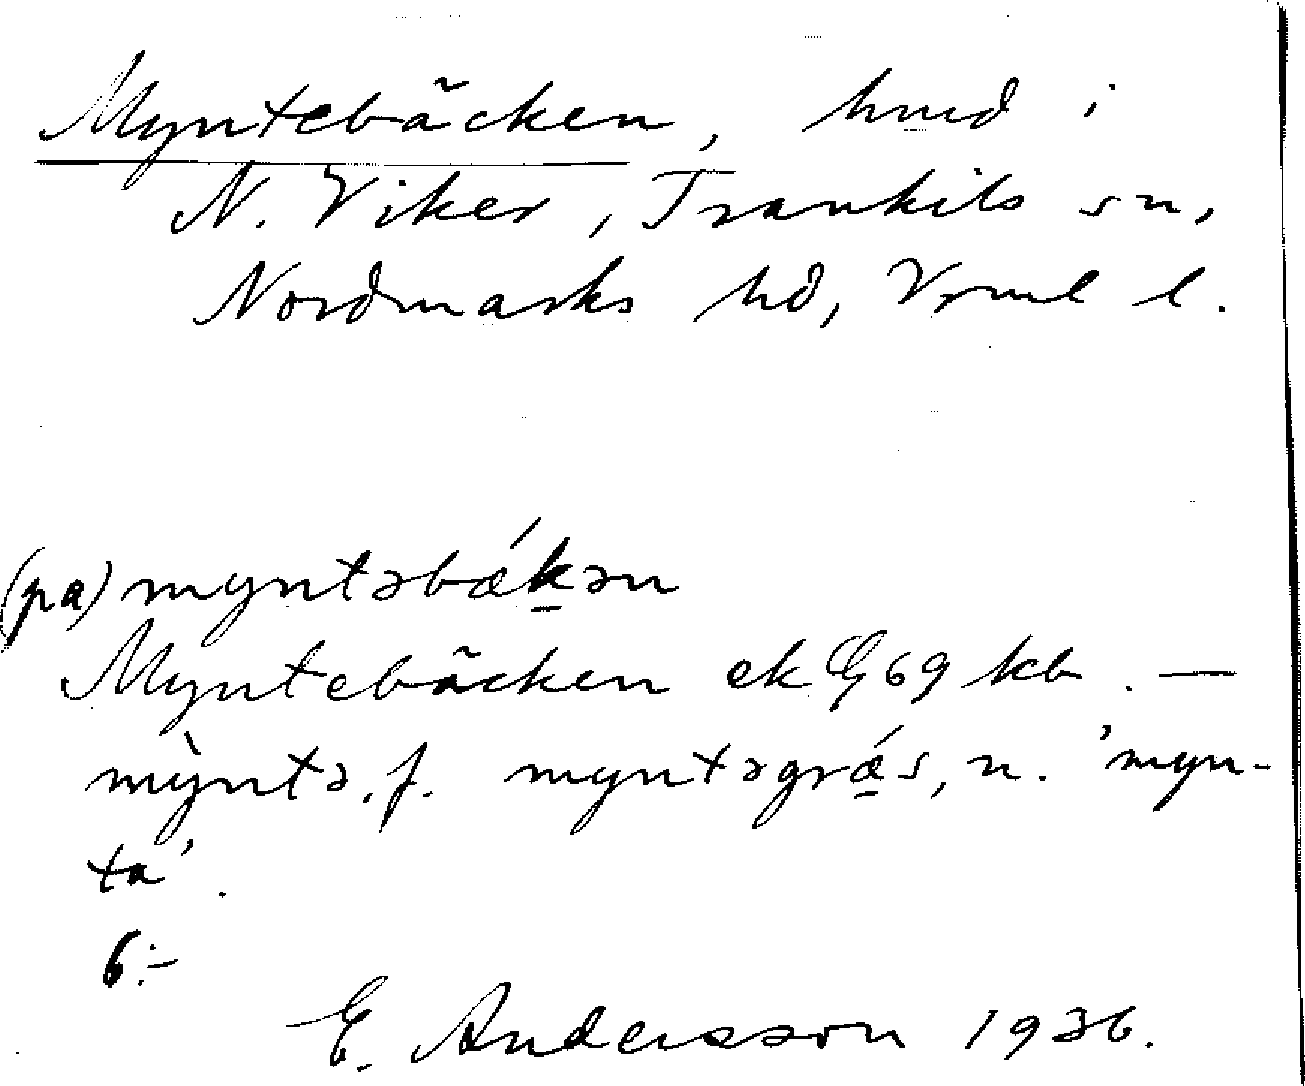 Myntebäcken, hmd i
N. Viker, Trankils sn,
Nordmarks hd, Vrml l.
(pa) myntəbæ´kən
Myntebäcken ek G 69 kb. —
mỳntə, f. myntəgræ´s, n. 'myn-
ta'.
6:-
E. Andersson 1936.